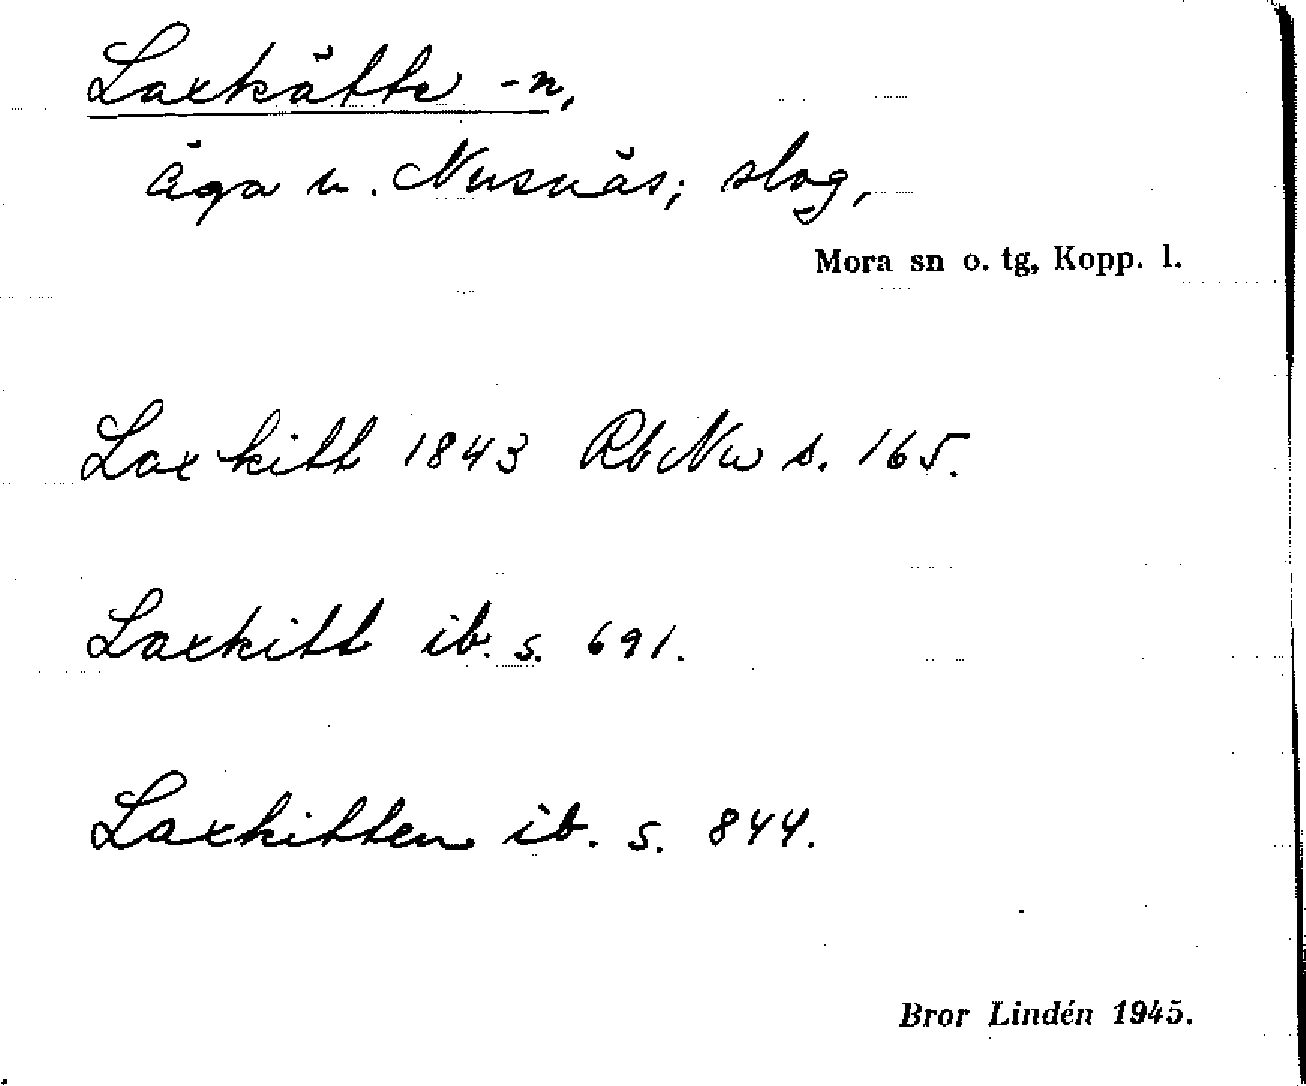 Laxkätte -n,
äga u. Nusnäs; slog,
Mora sn o. tg, Kopp. l.
Laxkitt 1843 RbNu s. 165.
Laxkitt ib. s. 691.
Laxkitten ib. s. 844.
Bror Lindén 1945.